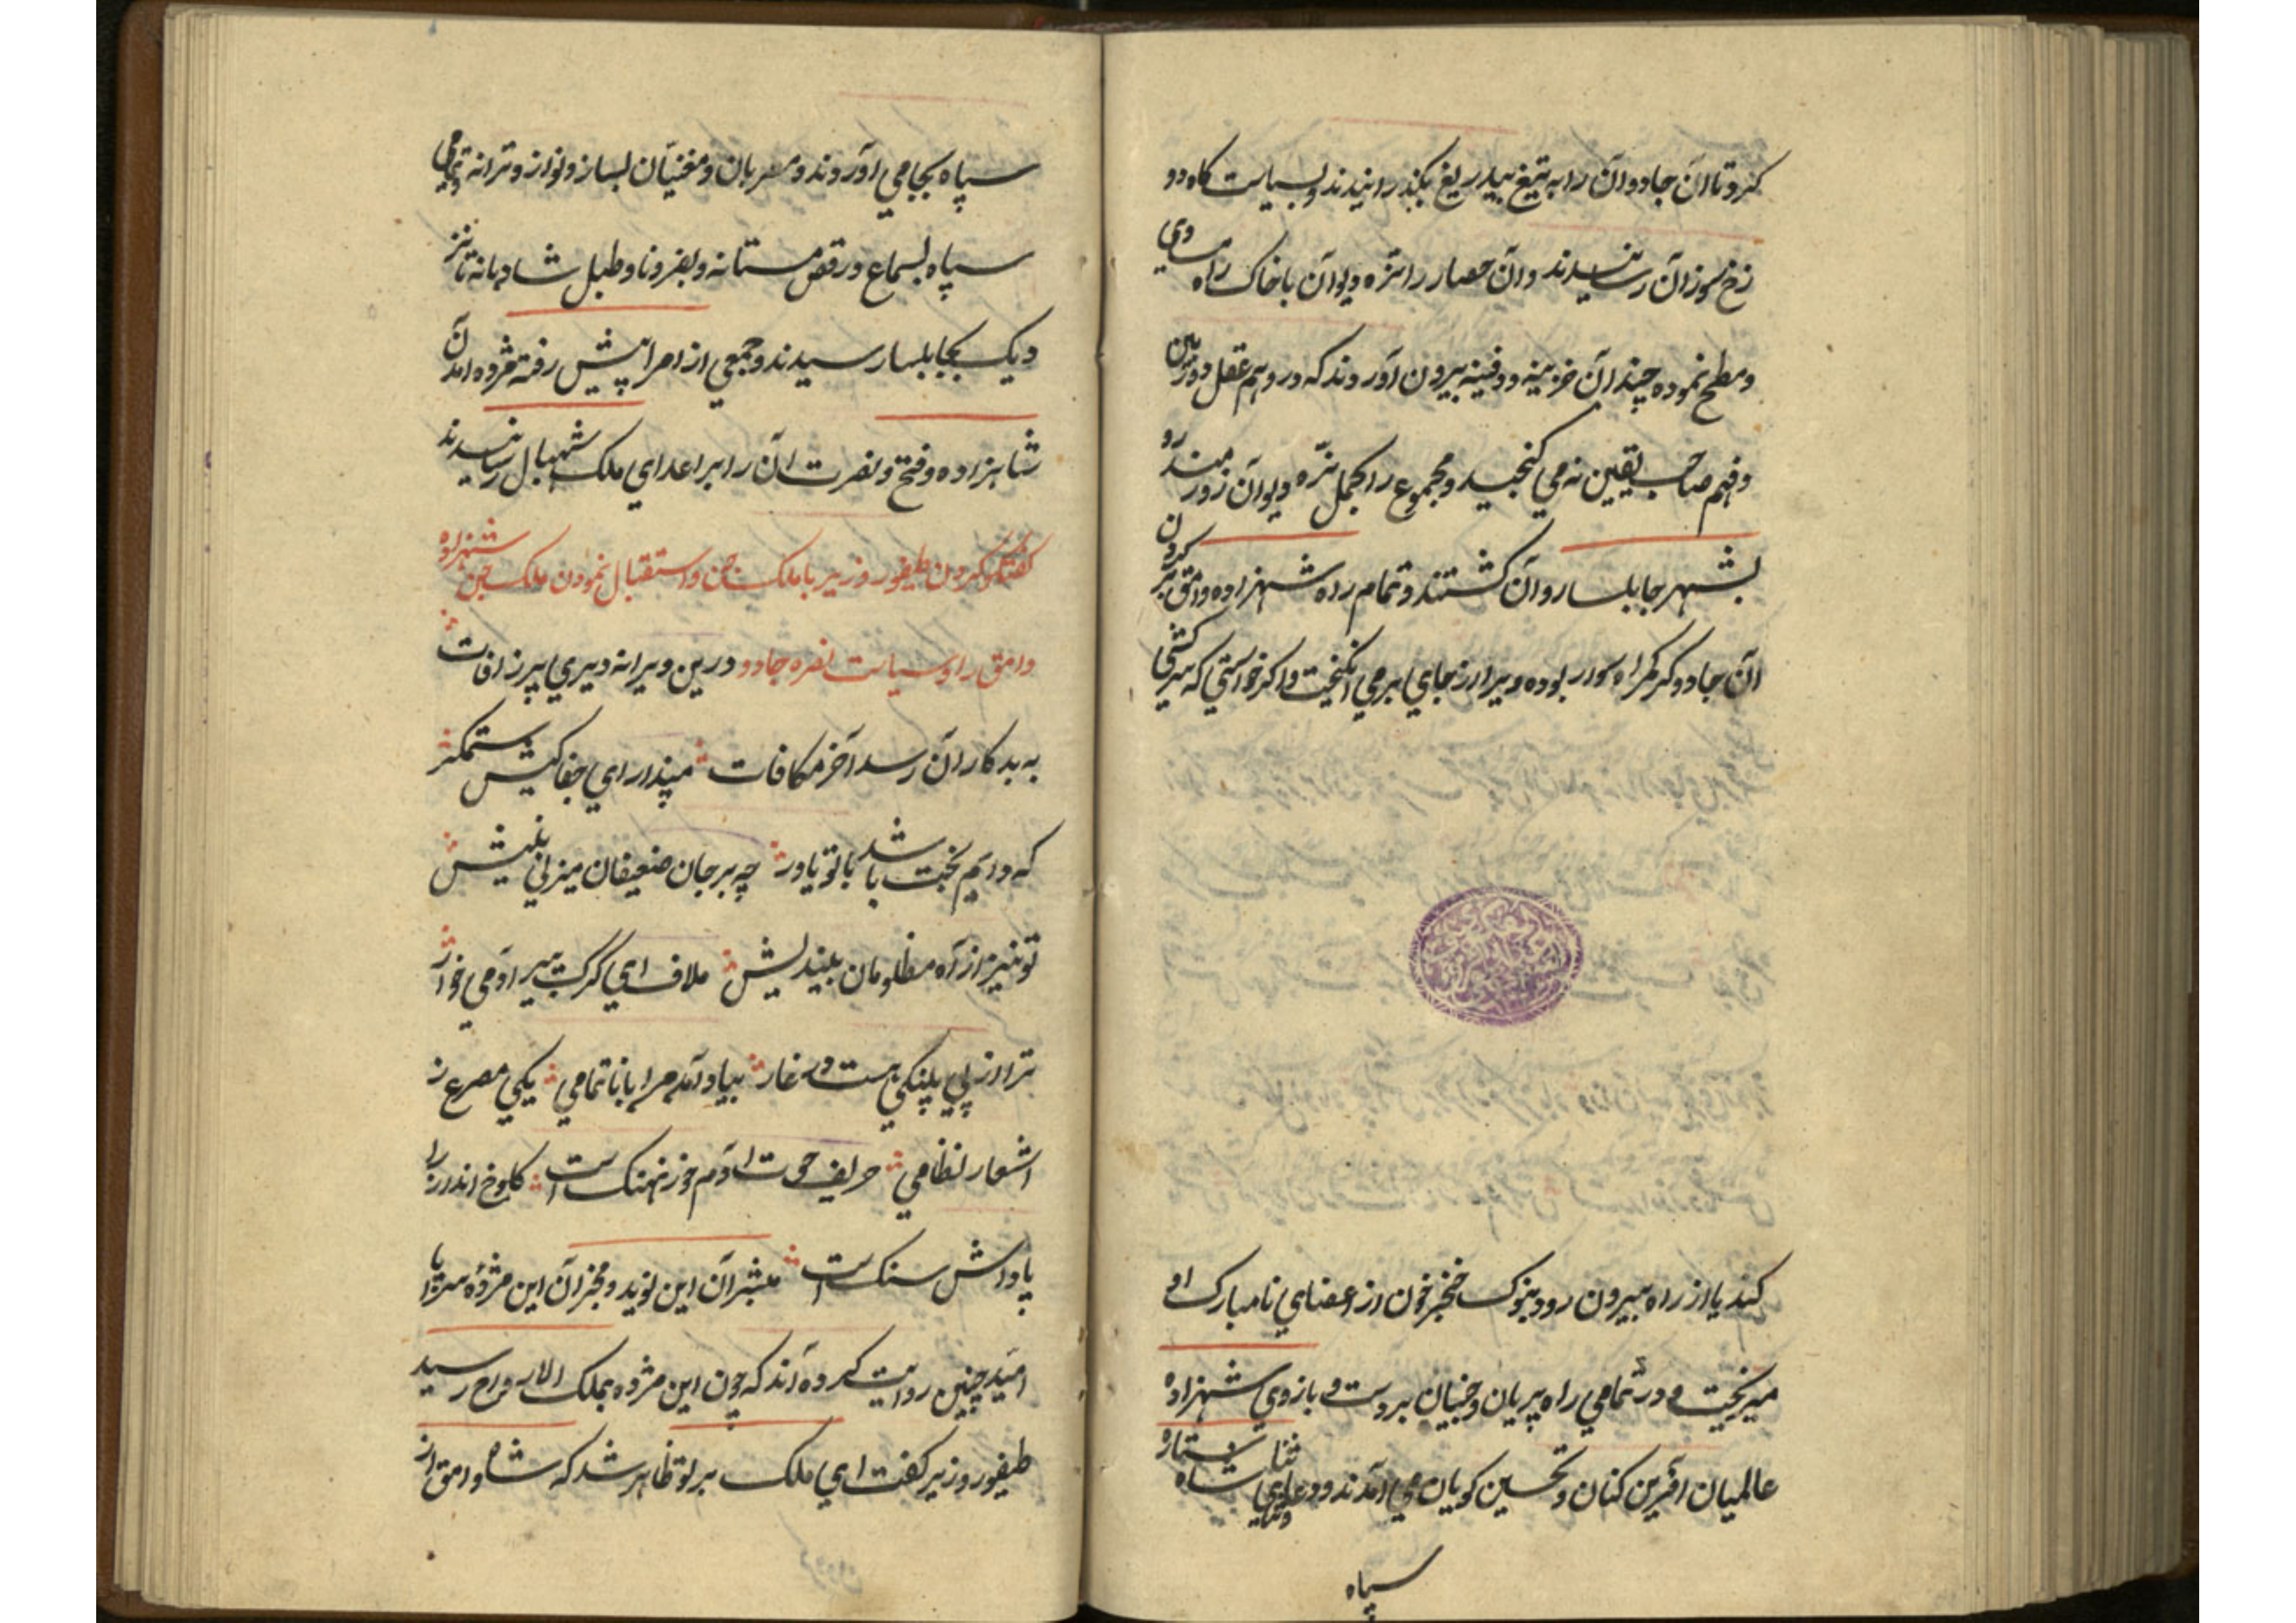 کرد تا آن جادوان را به تیغ بیدریغ بگذرانیدند و بسیاست کاه دو
زخ سوزان رسانیدند و آن حصار را نزه دیوان با خاک راه مساوی
و مطح نموده چندان خزینه و دفینه بیرون آوردند که در وهم عقل دوربین
و فهم صاحب یقین نه می کنجید و مجموع را بحمل نزه دیوان زورمند رو
بشهر جابلسا روان کشتند و تمام راه شهزاده وامق بر کردن
آن جادوکر کمراه سوار بوده ویرا از جای بر می انکیخت و اکر خواستی که سرکشی
کند یا از راه بیرون رود بنوک خنجر خون از اعضای نامبارک او
میریخت و در تمامی راه پریان و جنیان بر دست و بازوی شهزاده
عالمیان آفرین کنان و تحسین کویان می آمدند و دعای و ثنای شاه
سپاه
سپاه بجا می آوردند و مطربان و مغنیان بساز و نواز و ترانه و تمامی
سپاه بسماع و رقص مستانه و بفر و نا و طبل شادیانه تا نز
دیک بجابلسا رسیدند و جمعی از امرا پیش رفته مژده آمدن
شاهزاده و فتح و نصرت آن را بر اعدای ملک شهبال رسانیدند
کفتکو کردن طیفور وزیر با ملک جن و استقبال نمودن ملک جن شهزاده
وامق را و سیاست نصره جادو درین ویرانه دیری پر ز آفات
به بدکاران رسد آخر مکافات مپندار ای جفا کیش ستمکر
که دایم بخت باشد با تو یاور چه بر جان ضعیفان میزنی نیش
تو نیز از آه مظلومان بیندیش ملاف ای کرک سیر آدمی خوار
ترا از پی پلنکی هست در غار بیاد آمد مرا با ناتمامی یکی مصرع ز
اشعار نظامی حریف حوت آدم خور نهنک است کلوخ انداز را
پاداش سنک است مبشران این نوید و مخبران این مژده سراپا
امید چنین روایت کرده اند که چون این مژده بملک الاروراح رسید
طیفور وزیر کفت ای ملک بر تو ظاهر شد که شاه وامق از